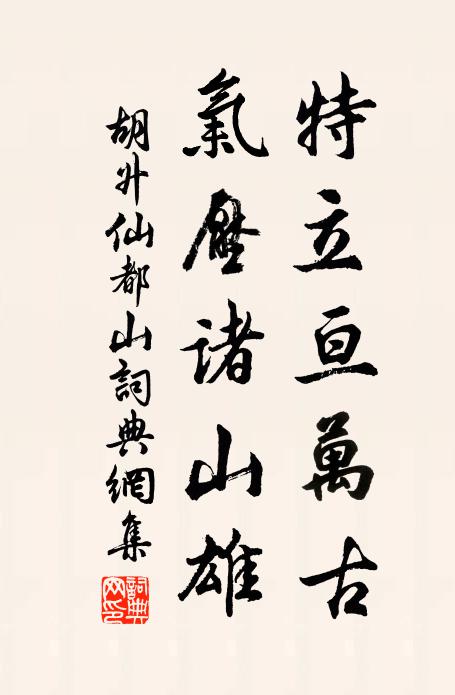 特立亘萬古
氣壓諸山雄
胡升仙都山詞典網集
詞典網印